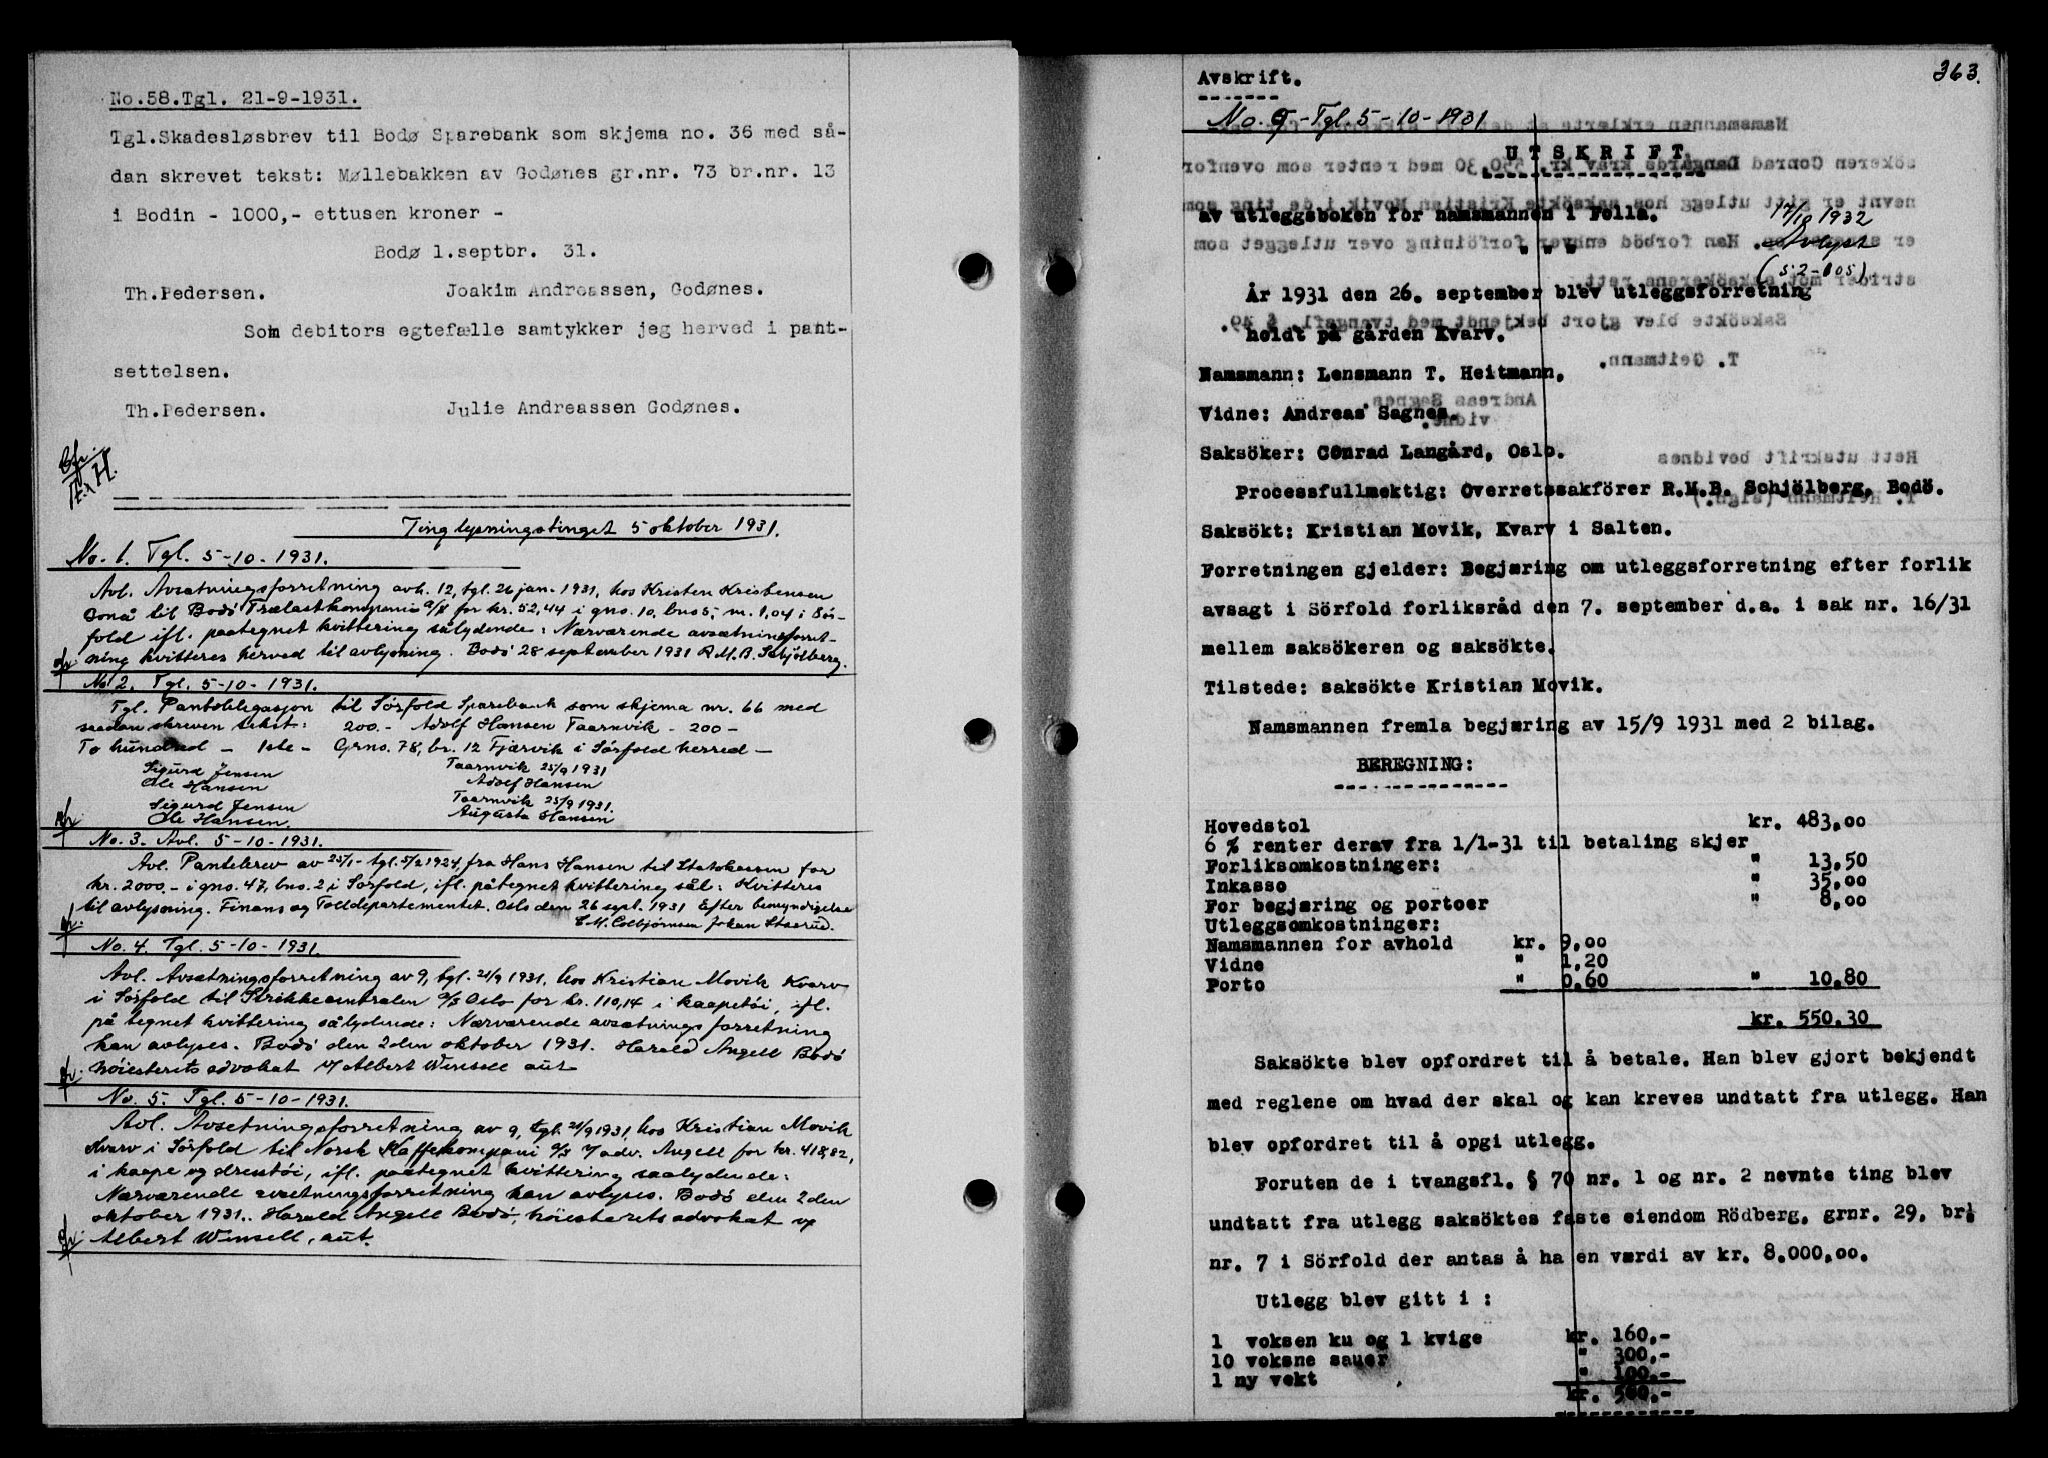 No.58.Tgl. 21-9-1931.
Tgl.Skadesløsbrev til Bodø Sparebank som skjema no. 36 med så-
dan skrevet tekst: Møllebakken av Godønes gr.nr. 73 br.nr. 13
i Bodin - 1000,- ettusen kroner -
Bodø 1.septbr. 31.
Th.Pedersen. Joakim Andreassen, Godønes.
Som debitors egtefælle samtykker jeg herved i pant-
settelsen.
Th.Pedersen. Julie Andreassen Godønes.
Tinglysningstinget 5 oktober 1931.
No. 1. Tgl. 5-10-1931.
Avl. Avsætningsforretning avh. 12, tgl. 26 jan. 1931, hos Kristen Kristensen
til Bodö Trælastkompani A/S for kr. 52,44 i gno. 10, bno 5, m. 1,04 i Sör-
fold ifl. paategnet kvittering sålydende: Nærværende avsætningsforret-
ning kvitteres herved til avlysning. Bodö 28 september 1931 R.M.B. Schjölberg.
No 2. Tgl. 5-10-1931.
Tgl. Pantobligasjon til Sörfold Sparebank som skjema nr. 66 med
saadan skreven tekst: 200.- Adolf Hansen Taarnvik - 200 -
To hundred - 1ste - Grno. 78, br. 12 Fjærvik i Sörfold herred -
Sigurd Jensen Taarnvik 25/9 1931
Ole Hansen Adolf Hansen
Sigurd Jensen Taarnvik 25/9 1931.
Ole Hansen. Augusta Hansen
No. 3. Avl. 5-10-1931.
Avl. Pantebrev av 25/1- tgl. 5/2 1924, fra Hans Hansen til Statskassen for
kr. 2000.- i gno. 47, bno. 2 i Sörfold, ifl. påtegnet kvittering sål: Kvitteres
til avlysning. Finans og Tolldepartementet. Oslo den 26 sept. 1931 Efter bemyndigelse
C.M. Colbjørnsen Johan
No. 4. Tgl. 5-10-1931.
Avl. Avsætningsforretning av 9, tgl. 21/9 1931, hos Kristian Movik Kvarv
i Sörfold til Strikkecentralen A/S Oslo for kr. 110,14 i kaapetöi, ifl.
påtegnet kvittering sålydende: Nærværende avsætningsforretning
kan avlyses. Bodö den 2den oktober 1931. Harald Angell Bodö
höiesterets advokat v/ Albert Winsell aut.
No. 5. Tgl. 5-10-1931.
Avl. Avsetningsforretning av 9, tgl. 21/9 1931, hos Kristian Movik
Kvarv i Sörfold til Norsk Kaffekompani A/S v/ adv. Angell for kr. 418,82,
i kaape og dresstöi, ifl. paategnet kvittering saalydende:
Nærværende avsetningsforretning kan avlyses. Bodö den 2den
oktober 1931. Harald Angell Bodö, höiesteretsadvokat v/
Albert Winsell, aut.
363.
Avskrift.
No. 9 - Tgl. 5-10-1931
UTSKRIFT
av utleggsboken for namsmannen i Folla.
17/10 1932
Avlyst
År 1931 den 26. september blev utleggsforretning
holdt på gården Kvarv.
Namsmann: Lensmann T. Heitmann.
Vidne: Andreas Sagnes.
Saksöker: Conrad Langård, Oslo.
Processfullmektig: Overretssakförer R.M.B. Schjölberg, Bodö.
Saksökt: Kristian Movik, Kvarv i Salten.
Forretningen gjelder: Begjæring om utleggsforretning efter forlik
avsagt i Sörfold forliksråd den 7. september d.a. i sak nr. 16/31
mellem saksökeren og saksökte.
Tilstede: saksökte Kristian Movik.
Namsmannen fremla begjæring av 15/9 1931 med 2 bilag.
BEREGNING:
Hovedstol kr. 483,00
6 % renter derav fra 1/1-31 til betaling skjer
Forliksomkostninger: " 13,50
Inkasso " 35,00
For begjæring og portoer " 8,00
Utleggsomkostninger:
Namsmannen for avhold kr. 9,00
Vidne " 1,20
Porto " 0,60 " 10,80
kr. 550,30
Saksökte blev opfordret til å betale. Han blev gjort bekjendt
med reglene om hvad der skal og kan kreves undtatt fra utlegg. Han
blev opfordret til å opgi utlegg.
Foruten de i tvangsfl. § 70 nr. 1 og nr. 2 nevnte ting blev
undtatt fra utlegg saksöktes faste eiendom Rödberg, grnr. 29, br.
nr. 7 i Sörfold der antas å ha en værdi av kr. 8.000,00.
Utlegg blev gitt i :
1 voksen ku og 1 kvige kr. 160,-
10 voksne sauer " 300,-
1 ny vekt " 100,-
kr. 560.-